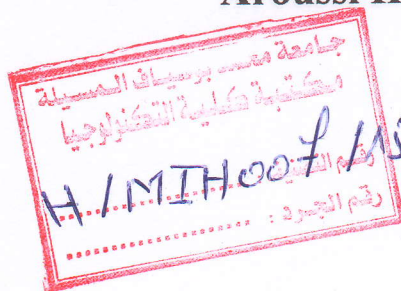 Aroussi H
جامعة محمد بوضياف المسيلة
مكتبة كلية التكنولوجيا
H/MIH007/15
رقم الجرد :